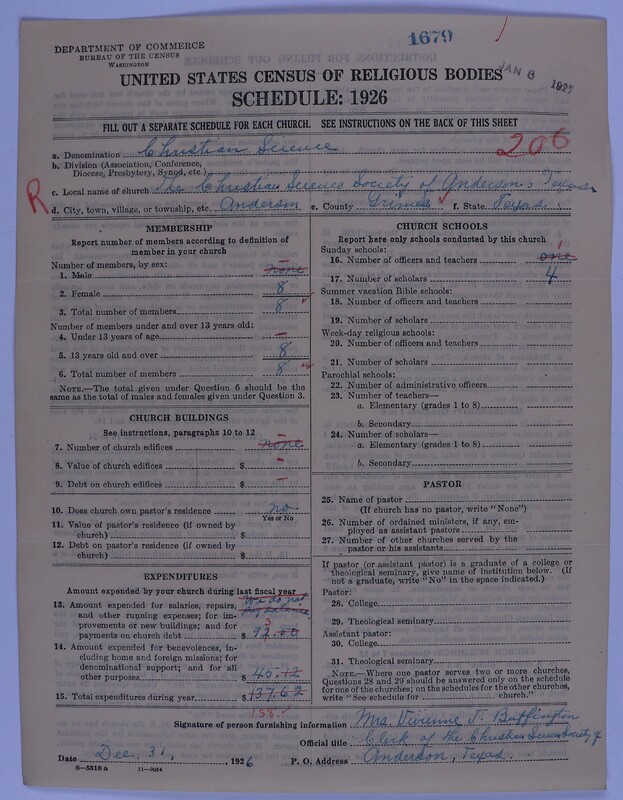 1679
DEPARTMENT OF COMMERCE
BUREAU OF THE CENSUS
WASHINGTON
JAN 8 1927
UNITED STATES CENSUS OF RELIGIOUS BODIES
SCHEDULE: 1926
FILL OUT A SEPARATE SCHEDULE FOR EACH CHURCH. SEE INSTRUCTIONS ON THE BACK OF THIS SHEET
206
a. Denomination Christian Science
b. Division (Association, Conference,
Diocese, Presbytery, Synod, etc.)
R
c. Local name of church The Christian Science Society of Anderson, Texas
d. City, town, village, or township, etc. Anderson e. County Grimes f. State Texas
MEMBERSHIP
Report number of members according to definition of
member in your church
Number of members, by sex:
1. Male none
2. Female 8
3. Total number of members 8
Number of members under and over 13 years old:
4. Under 13 years of age —
5. 13 years old and over 8
6. Total number of members 8
NOTE.—The total given under Question 6 should be the
same as the total of males and females given under Question 3.
CHURCH BUILDINGS
See instructions, paragraphs 10 to 12
7. Number of church edifices none
8. Value of church edifices $ —
9. Debt on church edifices $ —
10. Does church own pastor's residence no
Yes or No
11. Value of pastor's residence (if owned by
church) $
12. Debt on pastor's residence (if owned by
church) $
EXPENDITURES
Amount expended by your church during last fiscal year
We do not
13. Amount expended for salaries, repairs, pay salaries
and other running expenses; for im-
provements or new buildings; and for 3
payments on church debt $ 92.50
14. Amount expended for benevolences, in-
cluding home and foreign missions; for
denominational support; and for all
other purposes $ 45.12
15. Total expenditures during year $ 137.62
138.
CHURCH SCHOOLS
Report here only schools conducted by this church
Sunday schools: 1
16. Number of officers and teachers one
17. Number of scholars 4
Summer vacation Bible schools:
18. Number of officers and teachers
19. Number of scholars
Week-day religious schools:
20. Number of officers and teachers
21. Number of scholars
Parochial schools:
22. Number of administrative officers
23. Number of teachers—
a. Elementary (grades 1 to 8)
b. Secondary
24. Number of scholars—
a. Elementary (grades 1 to 8)
b. Secondary
PASTOR
25. Name of pastor
(If church has no pastor, write "None")
26. Number of ordained ministers, if any, em-
ployed as assistant pastors
27. Number of other churches served by the
pastor or his assistants
If pastor (or assistant pastor) is a graduate of a college or
theological seminary, give name of institution below. (If
not a graduate, write "No" in the space indicated.)
Pastor:
28. College
29. Theological seminary
Assistant pastor:
30. College
31. Theological seminary
NOTE.—Where one pastor serves two or more churches,
Questions 28 and 29 should be answered only on the schedule
for one of the churches; on the schedules for the other churches,
write "See schedule for church."
Signature of person furnishing information Mrs. Vivienne J. Buffington
Official title Clerk of the Christian Science Society of
Date Dec. 31, 1926 P. O. Address Anderson, Texas.
8—5518a 11—9054